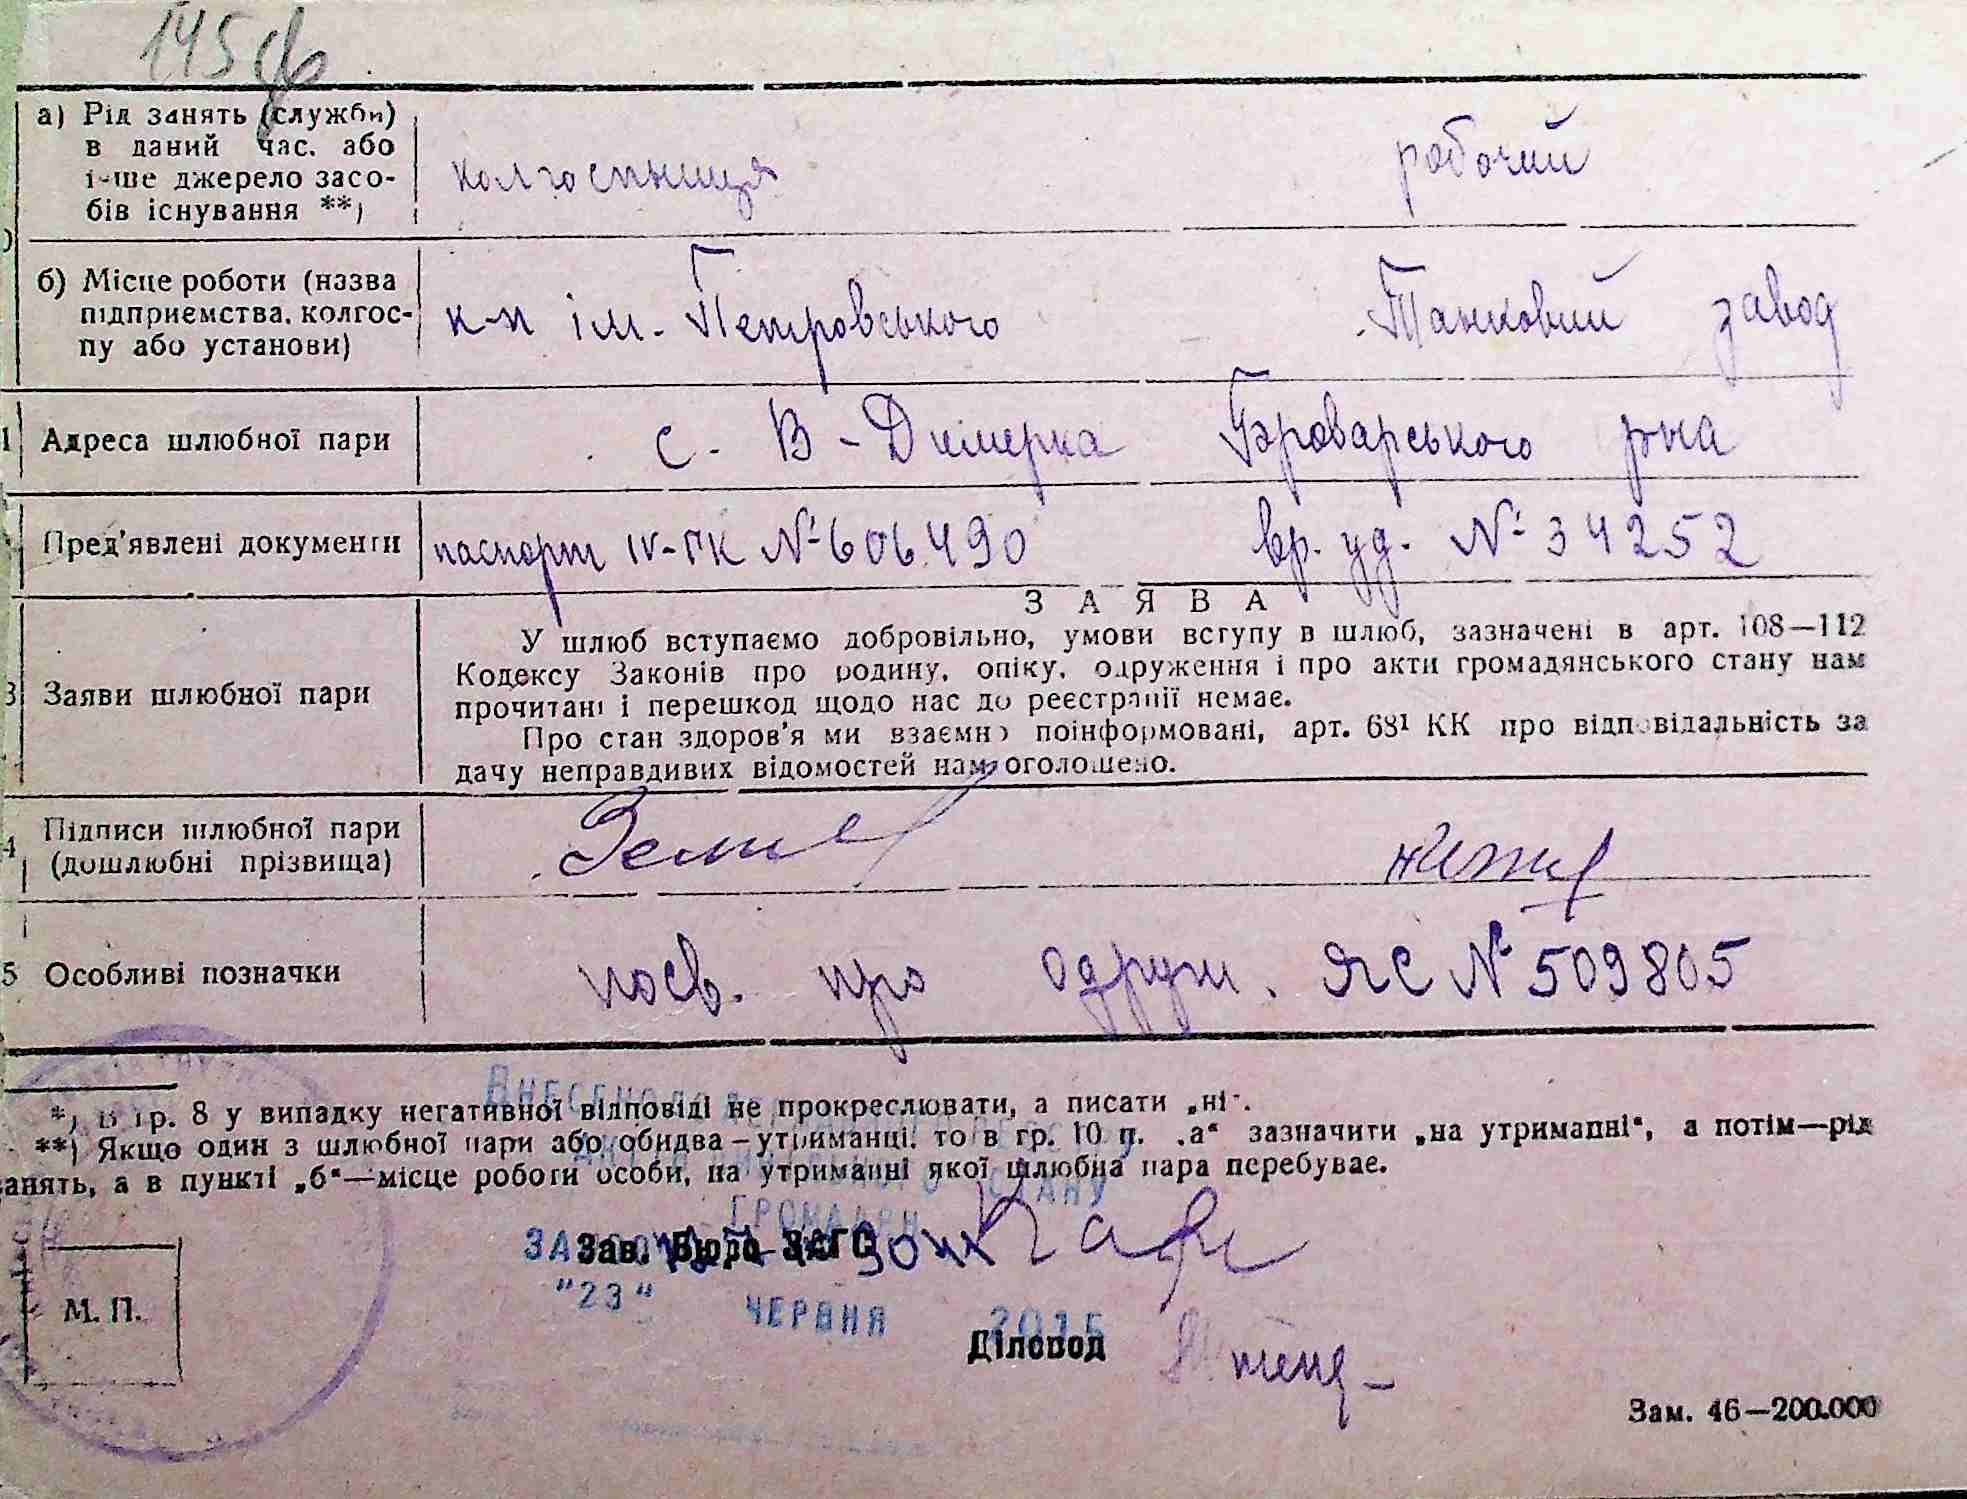 145
а) Рід занять (служби) в даний час, або інше джерело засобів існування **)
колгоспниця робочий
б) Місце роботи (назва підприємства, колгоспу або установи)
к-п ім. Петровського Танковий завод
Адреса шлюбної пари с. В-Димерка Броварського р-на
Пред'явлені документи паспорт IV-ГК № 606490 вр. уд. № 34252
ЗАЯВА
У шлюб вступаємо добровільно, умови вступу в шлюб, зазначені в арт. 108—112
Кодексу Законів про родину, опіку, одруження і про акти громадянського стану нам
прочитані і перешкод щодо нас до реєстрації немає.
Заяви шлюбної пари
Про стан здоров'я ми взаємно поінформовані, арт. 68¹ КК про відповідальність за
дачу неправдивих відомостей нам оголошено.
4 Підписи шлюбної пари
(дошлюбні прізвища)
5 Особливі позначки посв. про одруж. ЯС № 509805
*) В гр. 8 у випадку негативної відповіді не прокреслювати, а писати „ні".
**) Якщо один з шлюбної пари або обидва—утриманці, то в гр. 10 п. „а" зазначити „на утриманні", а потім—рід
занять, а в пункті „б"—місце роботи особи, на утриманні якої шлюбна пара перебуває.
СТАНУ
ГРОМАДЯН
Зав. Бюро ЗАГС
"23" ЧЕРВНЯ 2015
М. П.
Діловод
Зам. 46—200.000